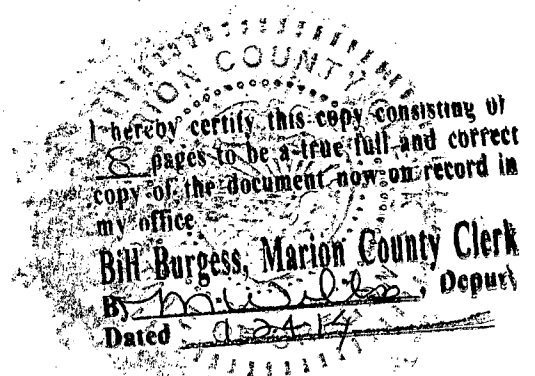 MARION COUNTY
I hereby certify this copy consisting of
8 pages to be a true full and correct
copy of the document now on record in
my office
Bill Burgess, Marion County Clerk
By , Deput
Dated 9-24-14